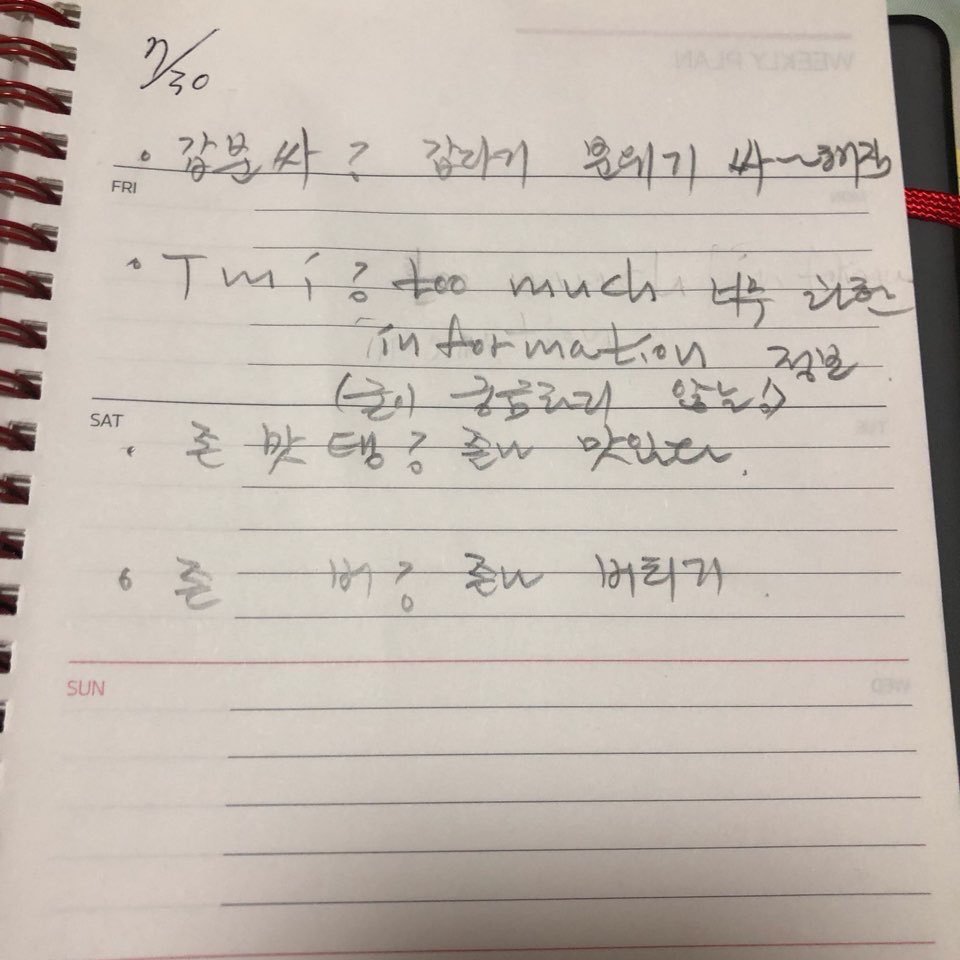 7/30
• 갑분싸? 갑자기 분위기 싸~해짐
FRI
• Tmi? too much 너무 과한
information 정보
(굳이 궁금하지 않는)
SAT
• 존맛탱? 존나 맛있다.
• 존버? 존나 버티기.
SUN
WEEKLY PLAN
WED